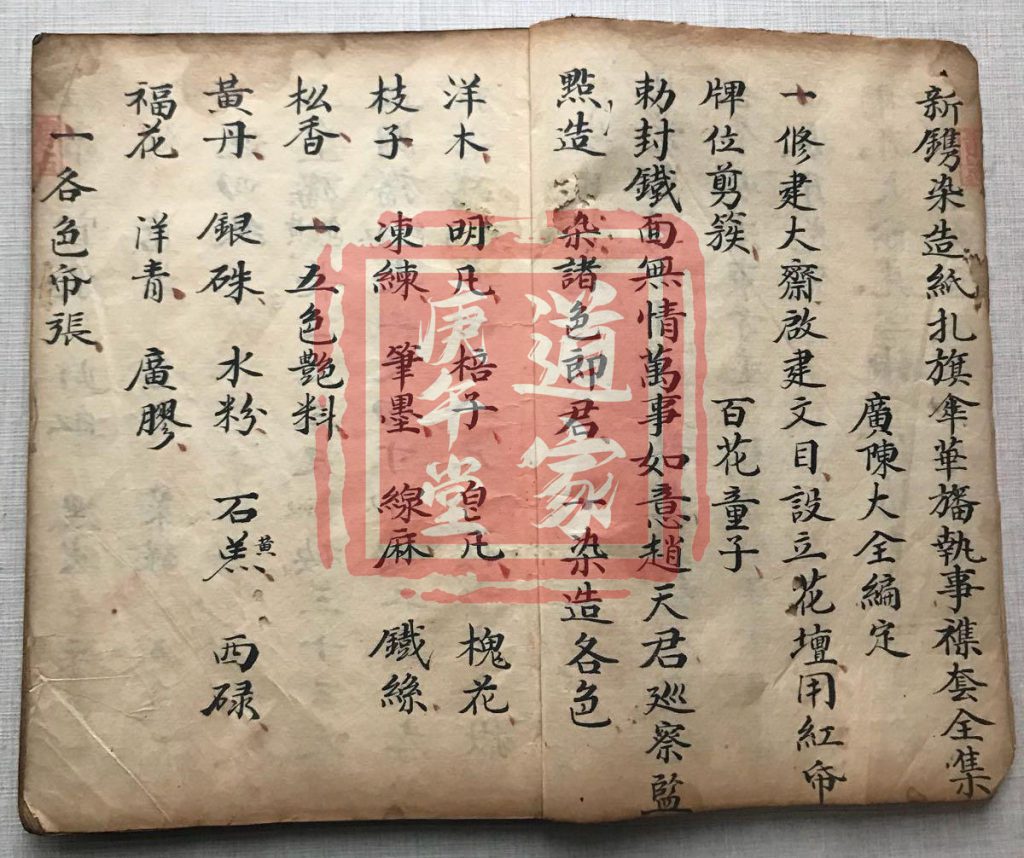 新鐫染造紙扎旗傘華旛執事襍套全集
廣陳大全編定
一修建大齋啟建文目設立花壇用紅帋
牌位剪簇 百花童子
勅封鐵面無情萬事如意趙天君廵察監
點造 染諸色郎君 一染造各色
洋木 明凡 棓子 白凡 槐花
枝子 凍綀 筆墨 線麻 鐵絲
松香 一五色艷料
黃丹 銀硃 水粉 石羔黃 西碌
福花 洋青 廣膠
一各色帋張
道家
庚午堂